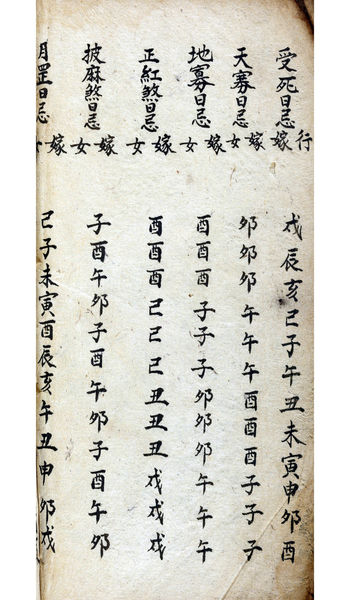 受死日忌行嫁 戌辰亥巳子午丑未寅申夘酉
天寡日忌嫁女 夘夘夘午午午酉酉酉子子子
地寡日忌嫁女 酉酉酉子子子夘夘夘午午午
正紅煞日忌嫁女 酉酉酉巳巳巳丑丑丑戌戌戌
披麻煞日忌嫁女 子酉午夘子酉午夘子酉午夘
月罡日忌嫁女 巳子未寅酉辰亥午丑申夘戌